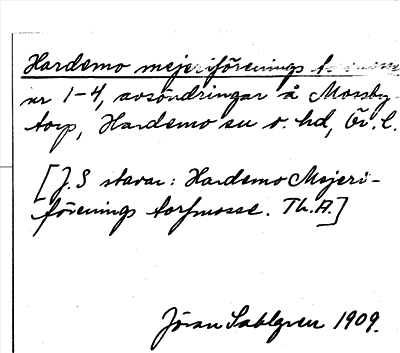 Hardemo mejeriförenings
nr 1-4, avsöndringar å Mossby-
torp, Hardemo sn o. hd, Ör. l.
[J.S stavar: Hardemo Mejeri-
förenings torfmosse. Th.A.]
Jöran Sahlgren 1909.